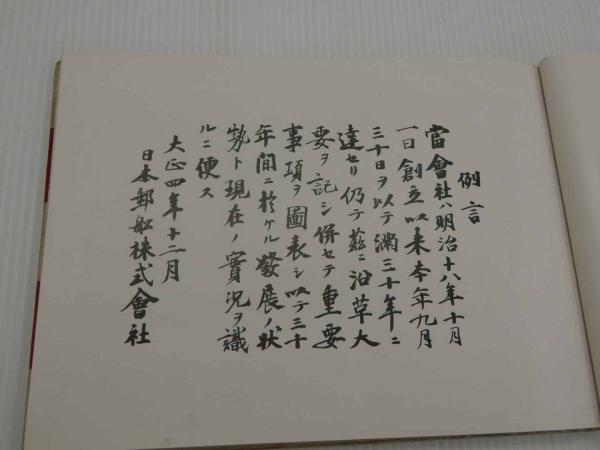 例言
當會社ハ明治十八年十月
一日創立以来本年九月
三十日ヲ以テ満三十年ニ
達セリ仍テ茲ニ沿革大
要ヲ記シ併セテ重要
事項ヲ圖表シ以テ三十
年間ニ於ケル發展ノ状
勢ト現在ノ實况ヲ識
ルニ便ス
大正四年十二月
日本郵船株式會社